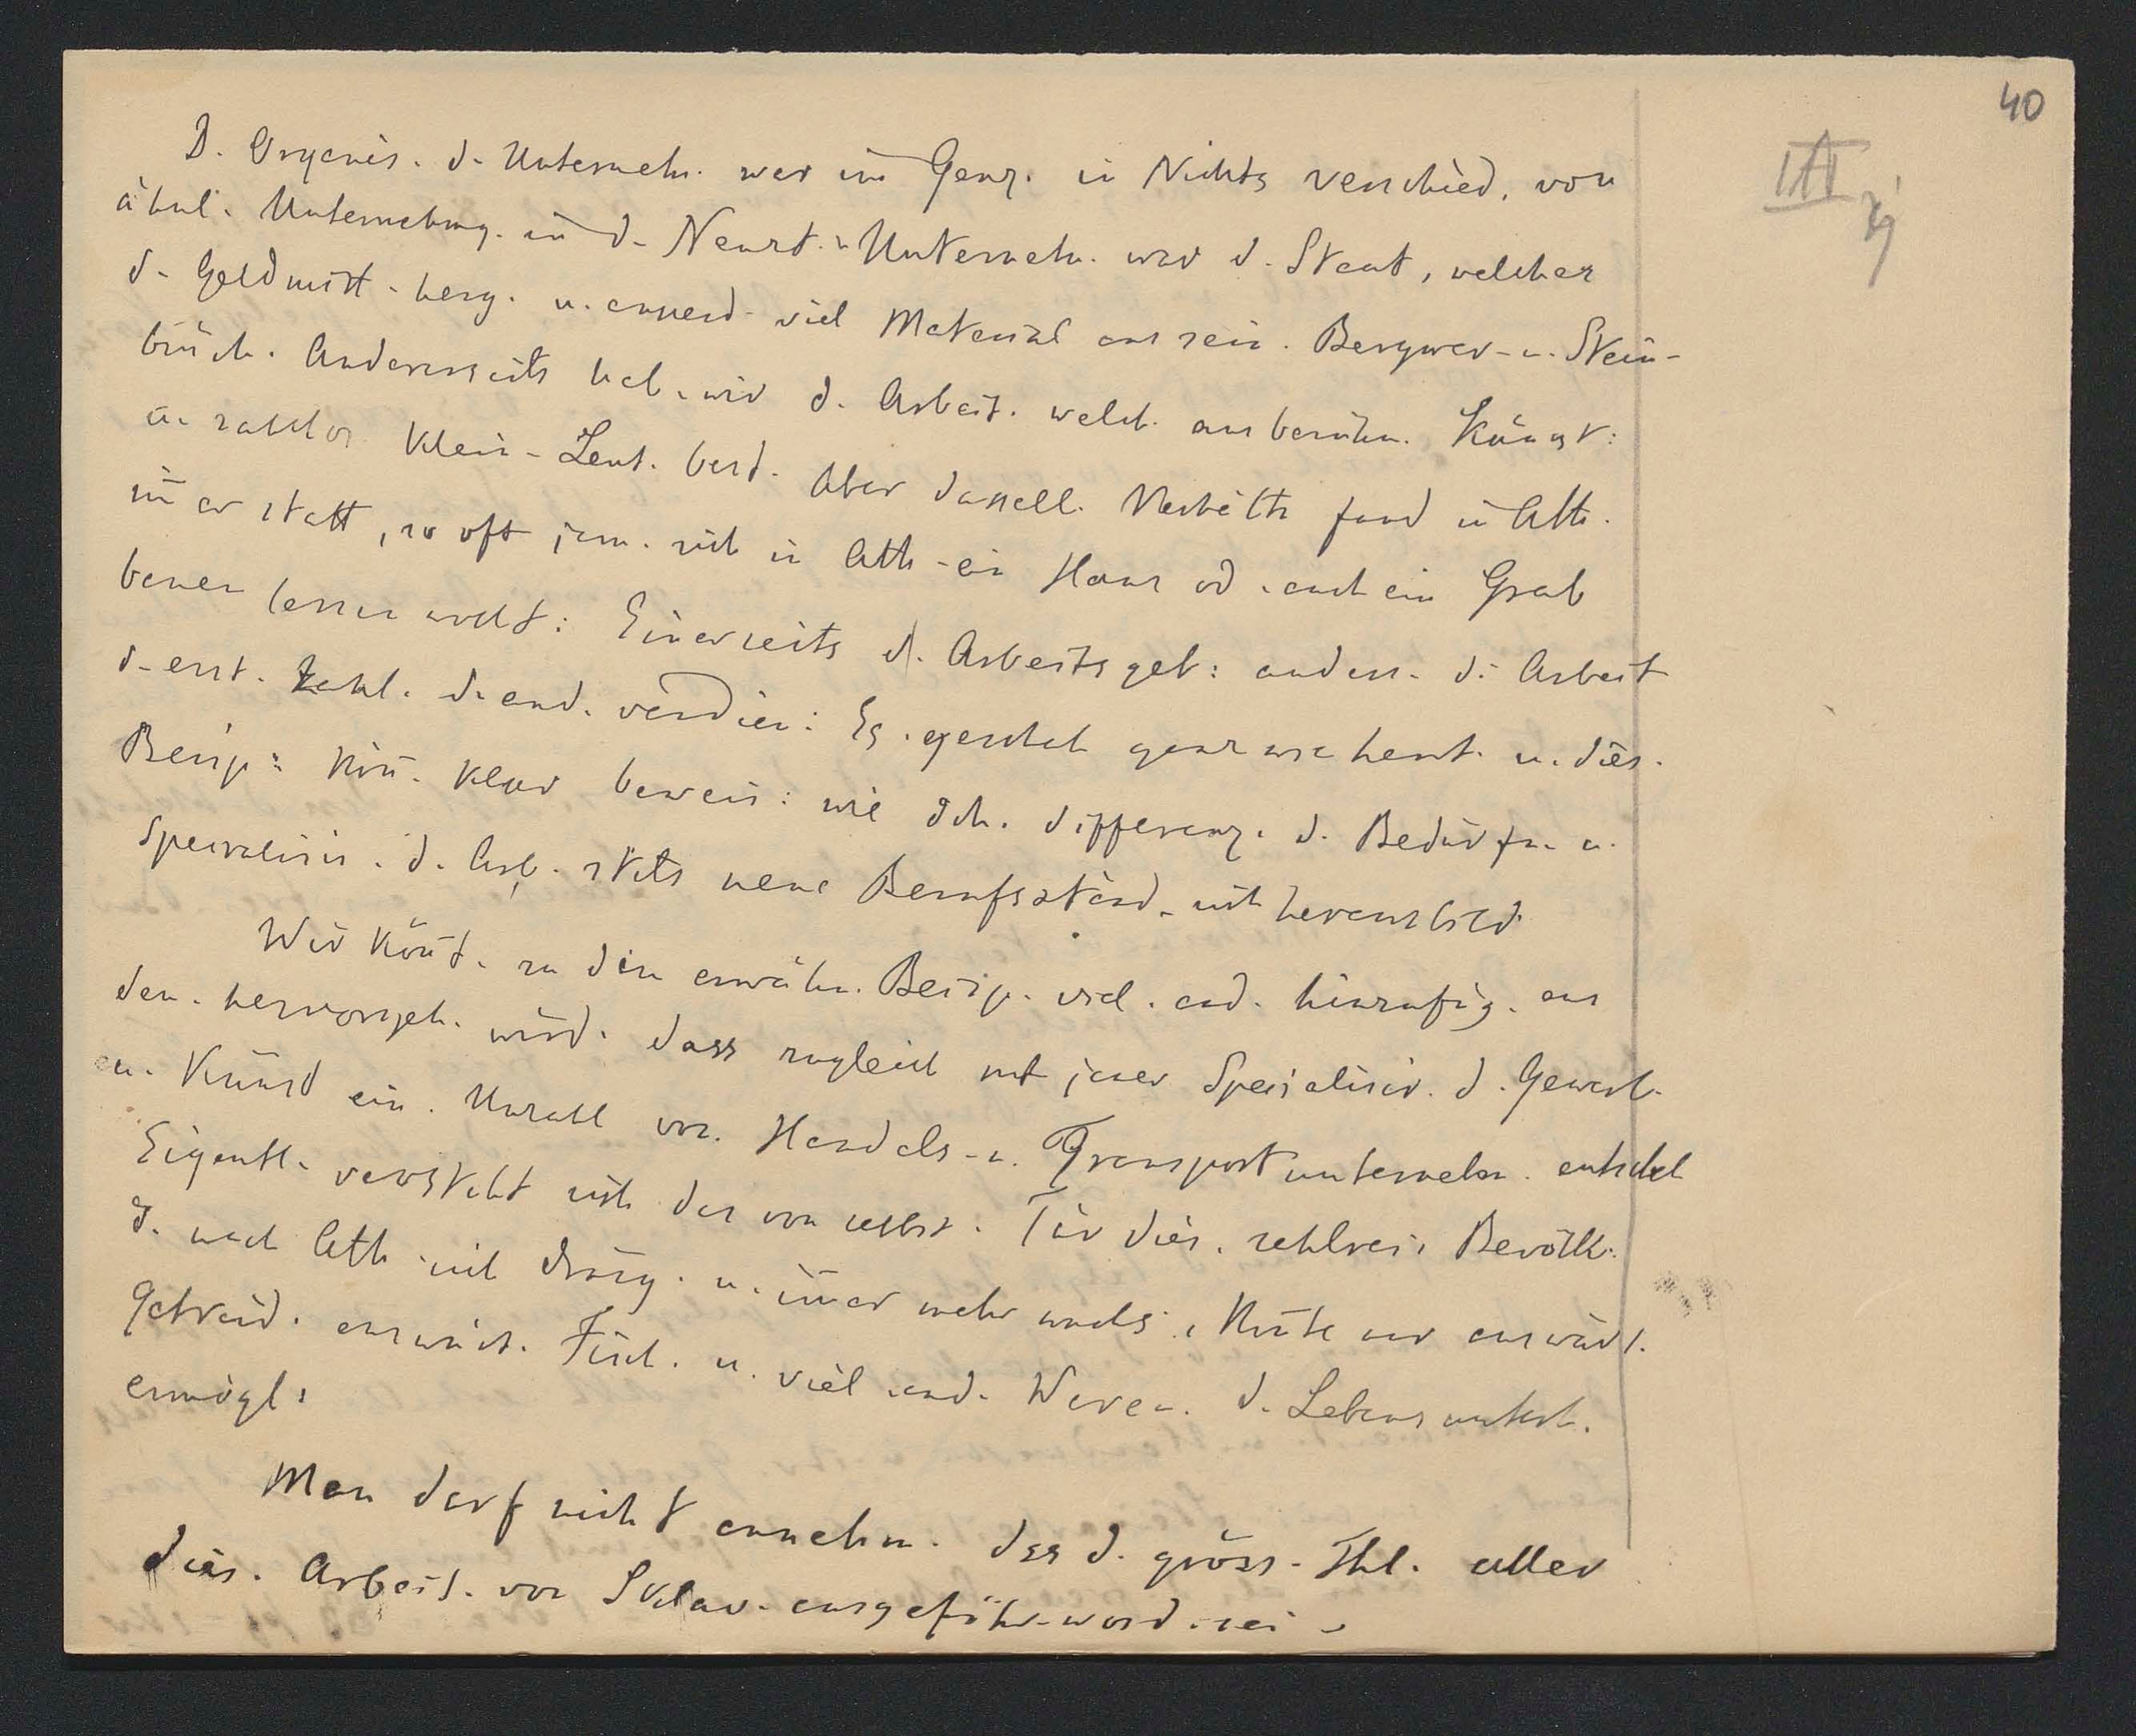 40
III
D. Organis. d. Unternehm. war im Ganz. in Nichts verschied. von
ähnl. Unternehmg. in d. Neuzt. Unternehm. war d. Staat, welcher
d. Geldmitt. herg. u. ausserd. viel Material aus sein. Bergwer- u. Stein-
brüch. Andererseits hab. wir d. Arbeit. welch. aus berühm. Künst:
u. zahllos. Klein-Leut. best. Aber dasselb. Verhältn fand in Ath.
im̄er statt, so oft jem. sich in Ath. ein Haus od. auch ein Grab
bauen lassen wollt: Einerseits d. Arbeitsgeb: anders. d. Arbeit
d. erst. zahl. d. and. verdien: Es. geschah ganz wie heut. u. dies.
Beisp: kön̄. klar beweis: wie dch. differenz. d. Bedürfn. u.
Specialisir. d. Arb. stets neue Berufsständ. sich herausbild
Wir kön̄t. zu den erwähn. Beisp. viel. and. hinzufüg. aus
den. hervorgeh. würd. dass zugleich mit jener Specialisir. d. Gewerb.
u. Künst ein. Unzahl von. Handels- u. Transportunternehm. entsteh
Eigentl. versteht sich das von selbst. Für dies. zahlrei. Bevölk.
d. nach Ath. sich dräng. u. im̄er mehr wuchs, mußte nur auswärt.
Getreid. auswärt. Fisch. u. viel. and. Waren. d. Lebensunterh.
ermögl.
Man darf nicht annehm. dss d. gröss. Thl. aller
dies. Arbeit. von Sklav. ausgeführ. word. sei.